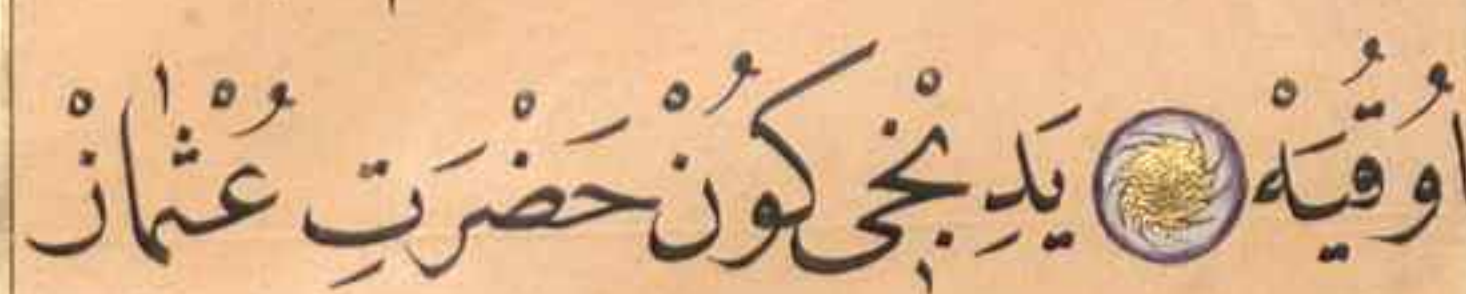 اُوقُیَهْ یَدِنْجِی كُونْ حَضْرَتِ عُثْمٰانْ